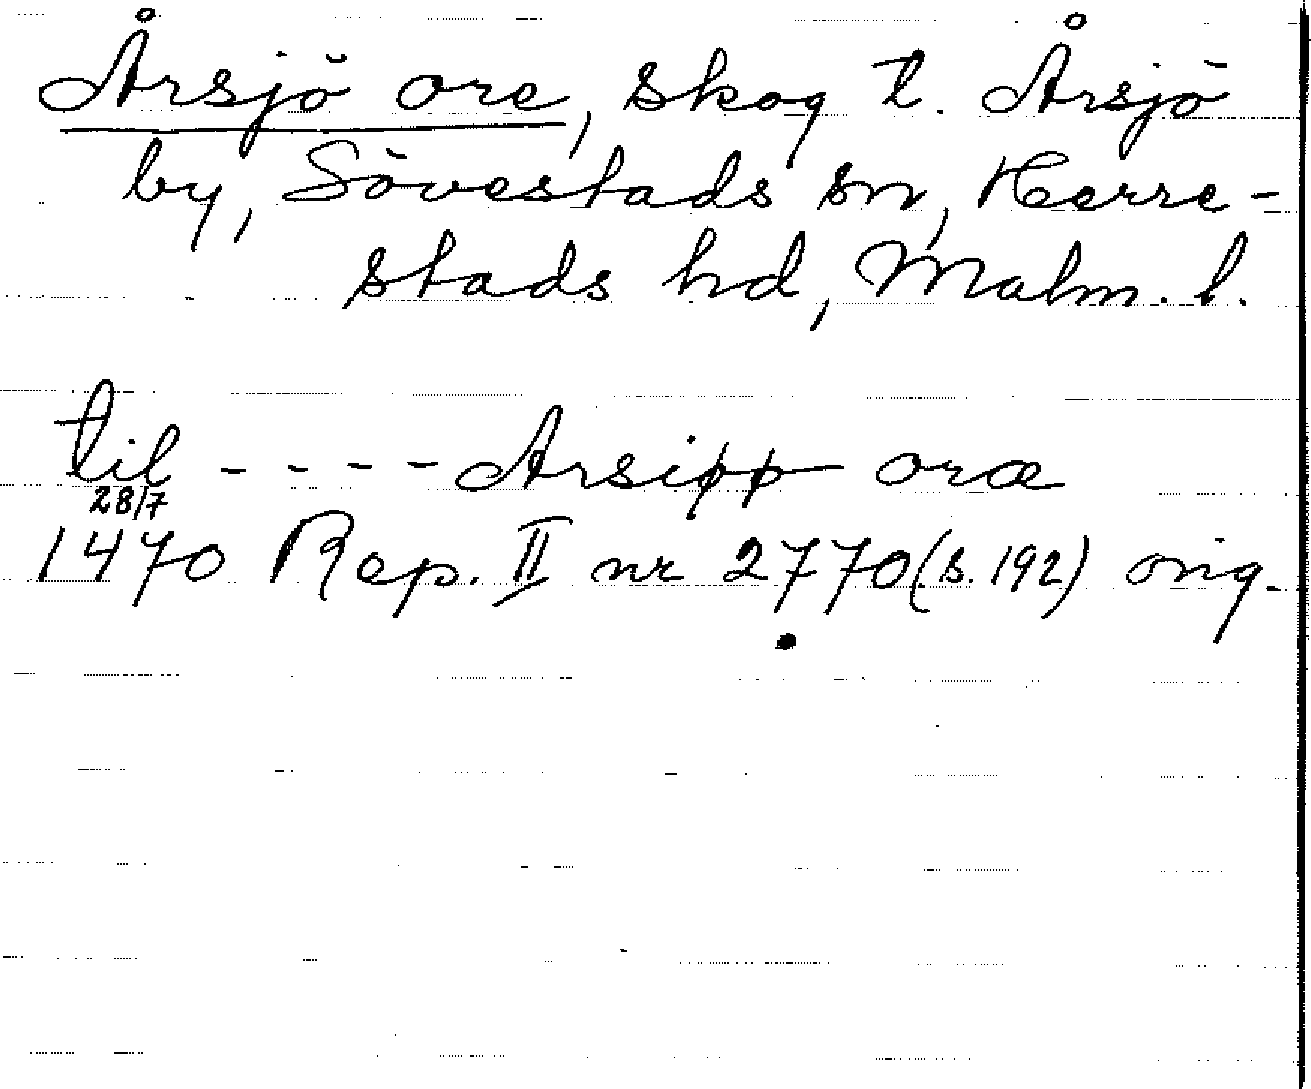 Årsjö ore, skog t. Årsjö
by, Sövestads sn, Herre-
stads hd, Malm. l.
til - - - - Arsiøø oræ
28/7
1470 Rep. II nr 2770 (s. 192) orig.